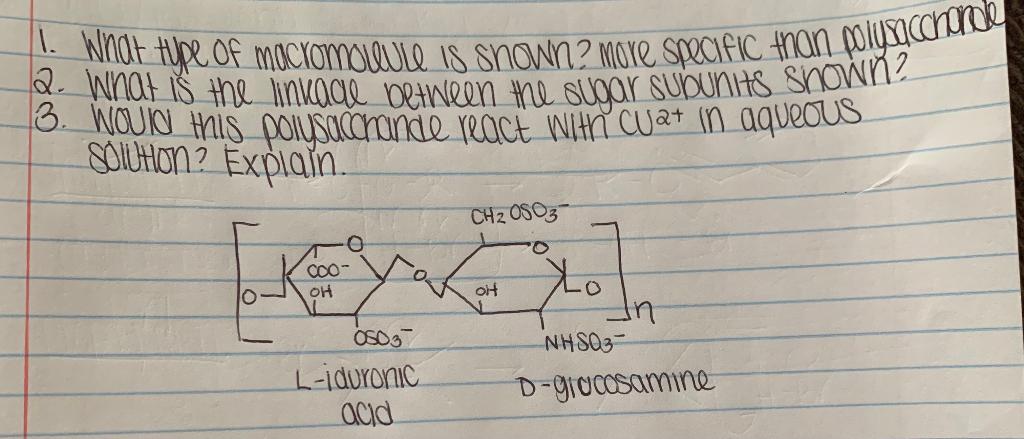 1. What type of macromolecule is shown? more specific than polysaccharide
2. What is the linkage between the sugar subunits shown?
3. Would this polysaccharide react with Cu2+ in aqueous
solution? Explain.
CH2 OSO3-
O
O
COO-
O
OH
OH
O
O
n
OSO3-
NHSO3-
L-iduronic
acid
D-glucosamine